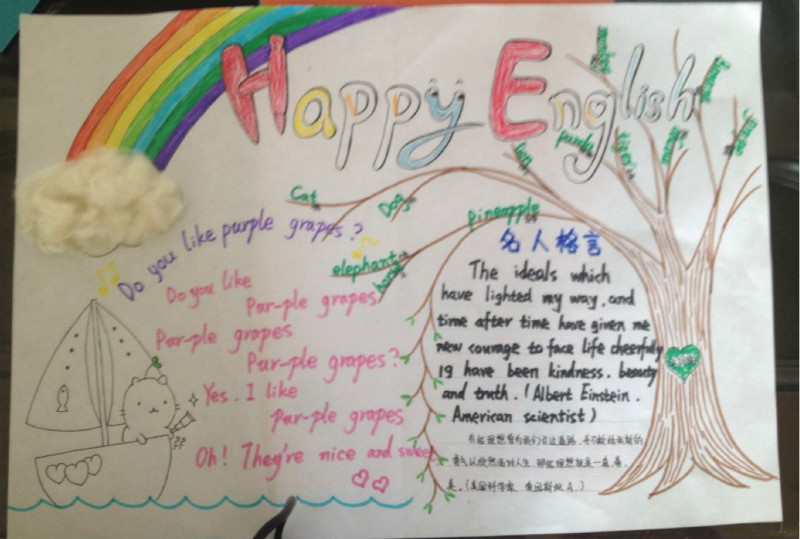 Happy English
monkey
panda
tiger
Cat
Dog
pineapple
elephant
horse
Do you like purple grapes?
Do you like
Par-ple grapes
Par-ple grapes
Pur-ple grapes?
Yes. I like
Par-ple grapes
Oh! They're nice and sweet
名人格言
The ideals which
have lighted my way, and
time after time have given me
new courage to face life cheerfully
19 have been kindness. beauty
and truth. (Albert Einstein.
American scientist)
有些理想曾为我们引过道路,并不断给我新的
勇气以欣然面对人生,那些理想就是一真、善、
美。(美国科学家 爱因斯坦 A.)